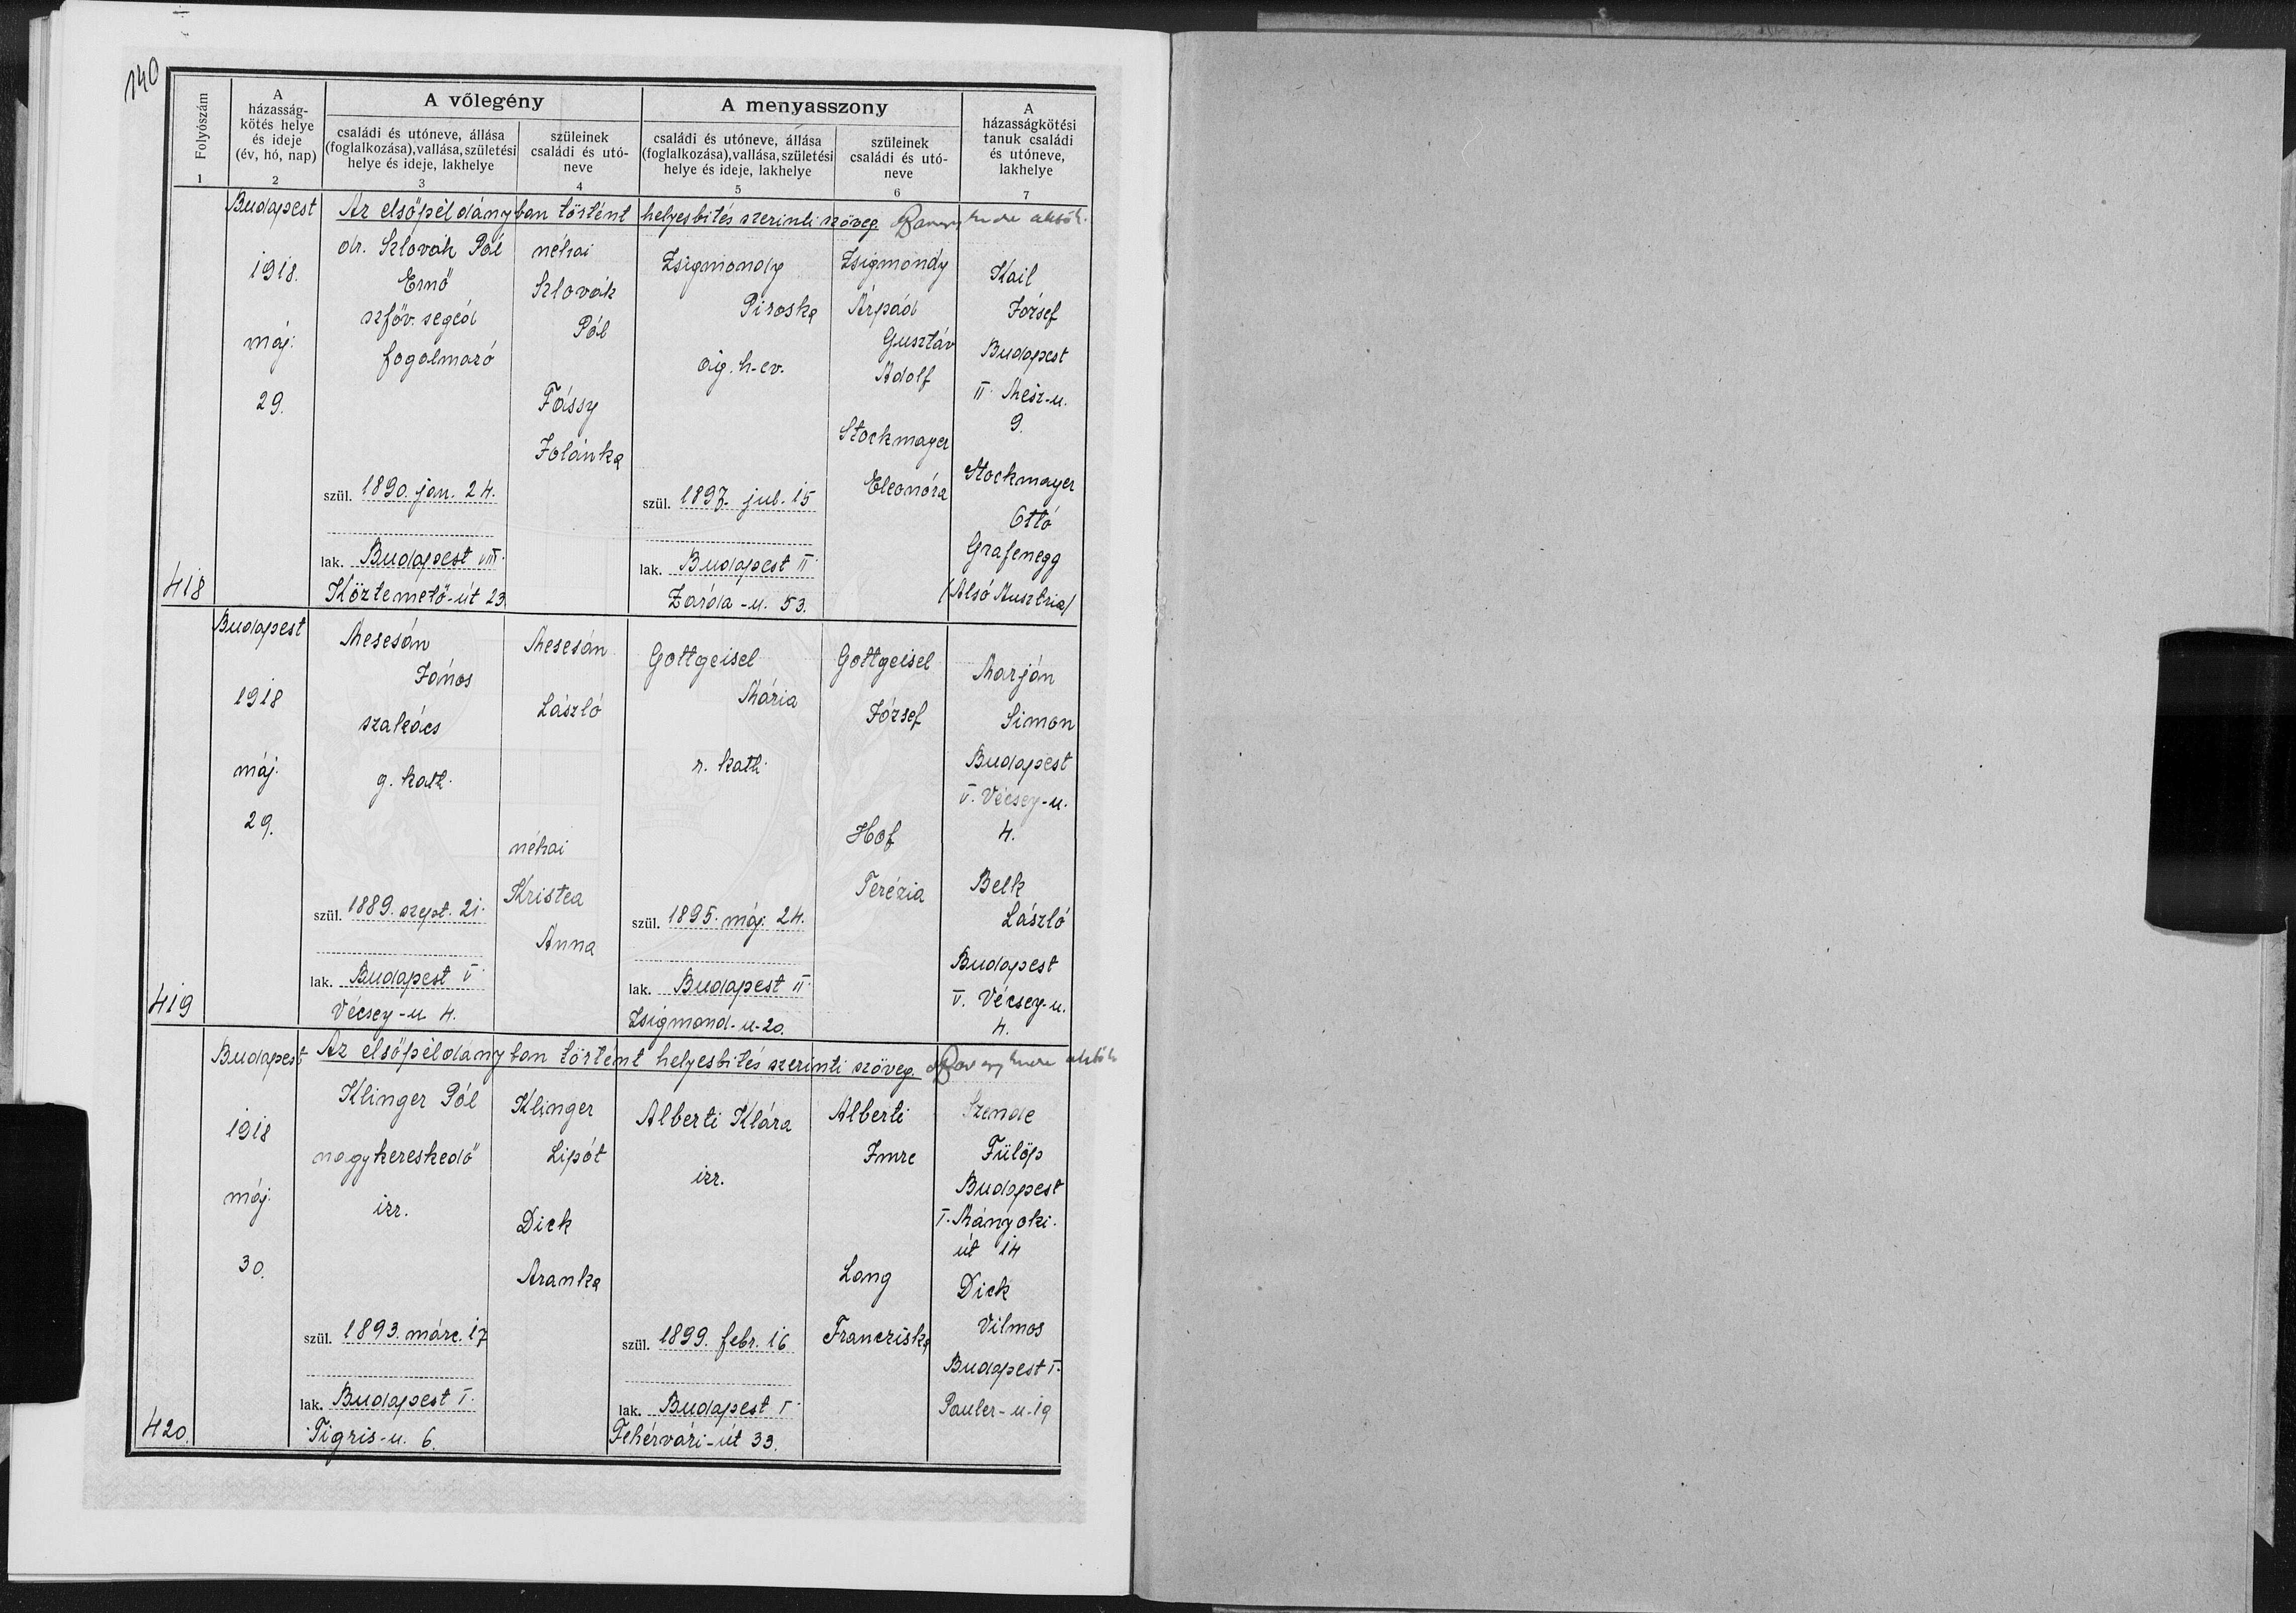 140
Folyószám
1
A
házasság-
kötés helye
és ideje
(év, hó, nap)
2
A vőlegény
családi és utóneve, állása
(foglalkozása), vallása, születési
helye és ideje, lakhelye
3
szüleinek
családi és utó-
neve
4
A menyasszony
családi és utóneve, állása
(foglalkozása), vallása, születési
helye és ideje, lakhelye
5
szüleinek
családi és utó-
neve
6
A
házasságkötési
tanuk családi
és utóneve,
lakhelye
7
418
Budapest
1918.
máj.
29.
Az elsőpéldányban történt helyesbités szerinti szöveg.
dr. Szlovák Pál
Ernő
szföv. segéd
fogalmazó
szül. 1890. jan. 24.
lak. Budapest VIII.
Köztemető-út 23.
néhai
Szlovák
Pál
Fássy
Jolánka
Zsigmondy
Piroska
ág. h. ev.
szül. 1897. jul. 15
lak. Budapest II.
Zárda-u. 53.
Zsigmondy
Árpád
Gusztáv
Adolf
Stockmayer
Eleonóra
Kail
József
Budapest
II. Mész-u.
9.
Stockmayer
Ottó
Grafenegg
/Alsó Ausztria/
419
Budapest
1918
máj.
29.
Mesesán
János
szakács
g. kath.
szül. 1889. szept. 21.
lak. Budapest V.
Vécsey-u 4.
Mesesán
László
néhai
Kristea
Anna
Gottgeisel
Mária
r. kath.
szül. 1895. máj. 24.
lak. Budapest II.
Zsigmond-u-20.
Gottgeisel
József
Hof
Terézia
Marján
Simon
Budapest
V. Vécsey-u.
4.
Belk
László
Budapest
V. Vécsey-u.
4.
420.
Budapest
1918
máj.
30.
Az elsőpéldányban történt helyesbités szerinti szöveg.
Klinger Pál
nagykereskedő
izr.
szül. 1893. márc. 17
lak. Budapest I.
Tigris-u. 6.
Klinger
Lipót
Dick
Aranka
Alberti Klára
izr.
szül. 1899. febr. 16
lak. Budapest I.
Fehérvári-út 33.
Alberti
Imre
Lang
Francziska
Szende
Fülöp
Budapest
I. Mányoki-
út 14
Dick
Vilmos
Budapest I.
Pauler-u. 19